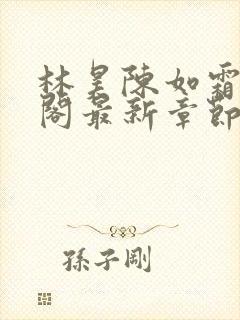 林昊陳如霜
閣最新章節
孫子剛